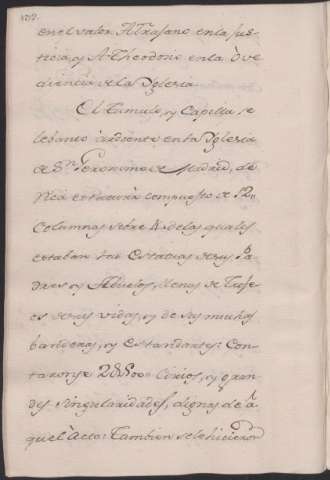 en el valor, A Trajano en la Jus-
ticia, y A Theodosio en la Ove
diencia de la Yglesia
El Tumulo, y Capilla se
lebanto ardiente en la Yglesia
de Sn. Geronimo de Madrid, de
rica estructura compuesto de 12,,
Columnas sobre las quales
estaban las Estatuas de sus Pa
dres y Abuelos, llenas de Trofe
os de sus vidas, y de sus muchas
banderas, y Estandartes: Con
taronse Cirios, y gran
des singularidades, dignas de a
quel Acto: Tambien se le hicieron